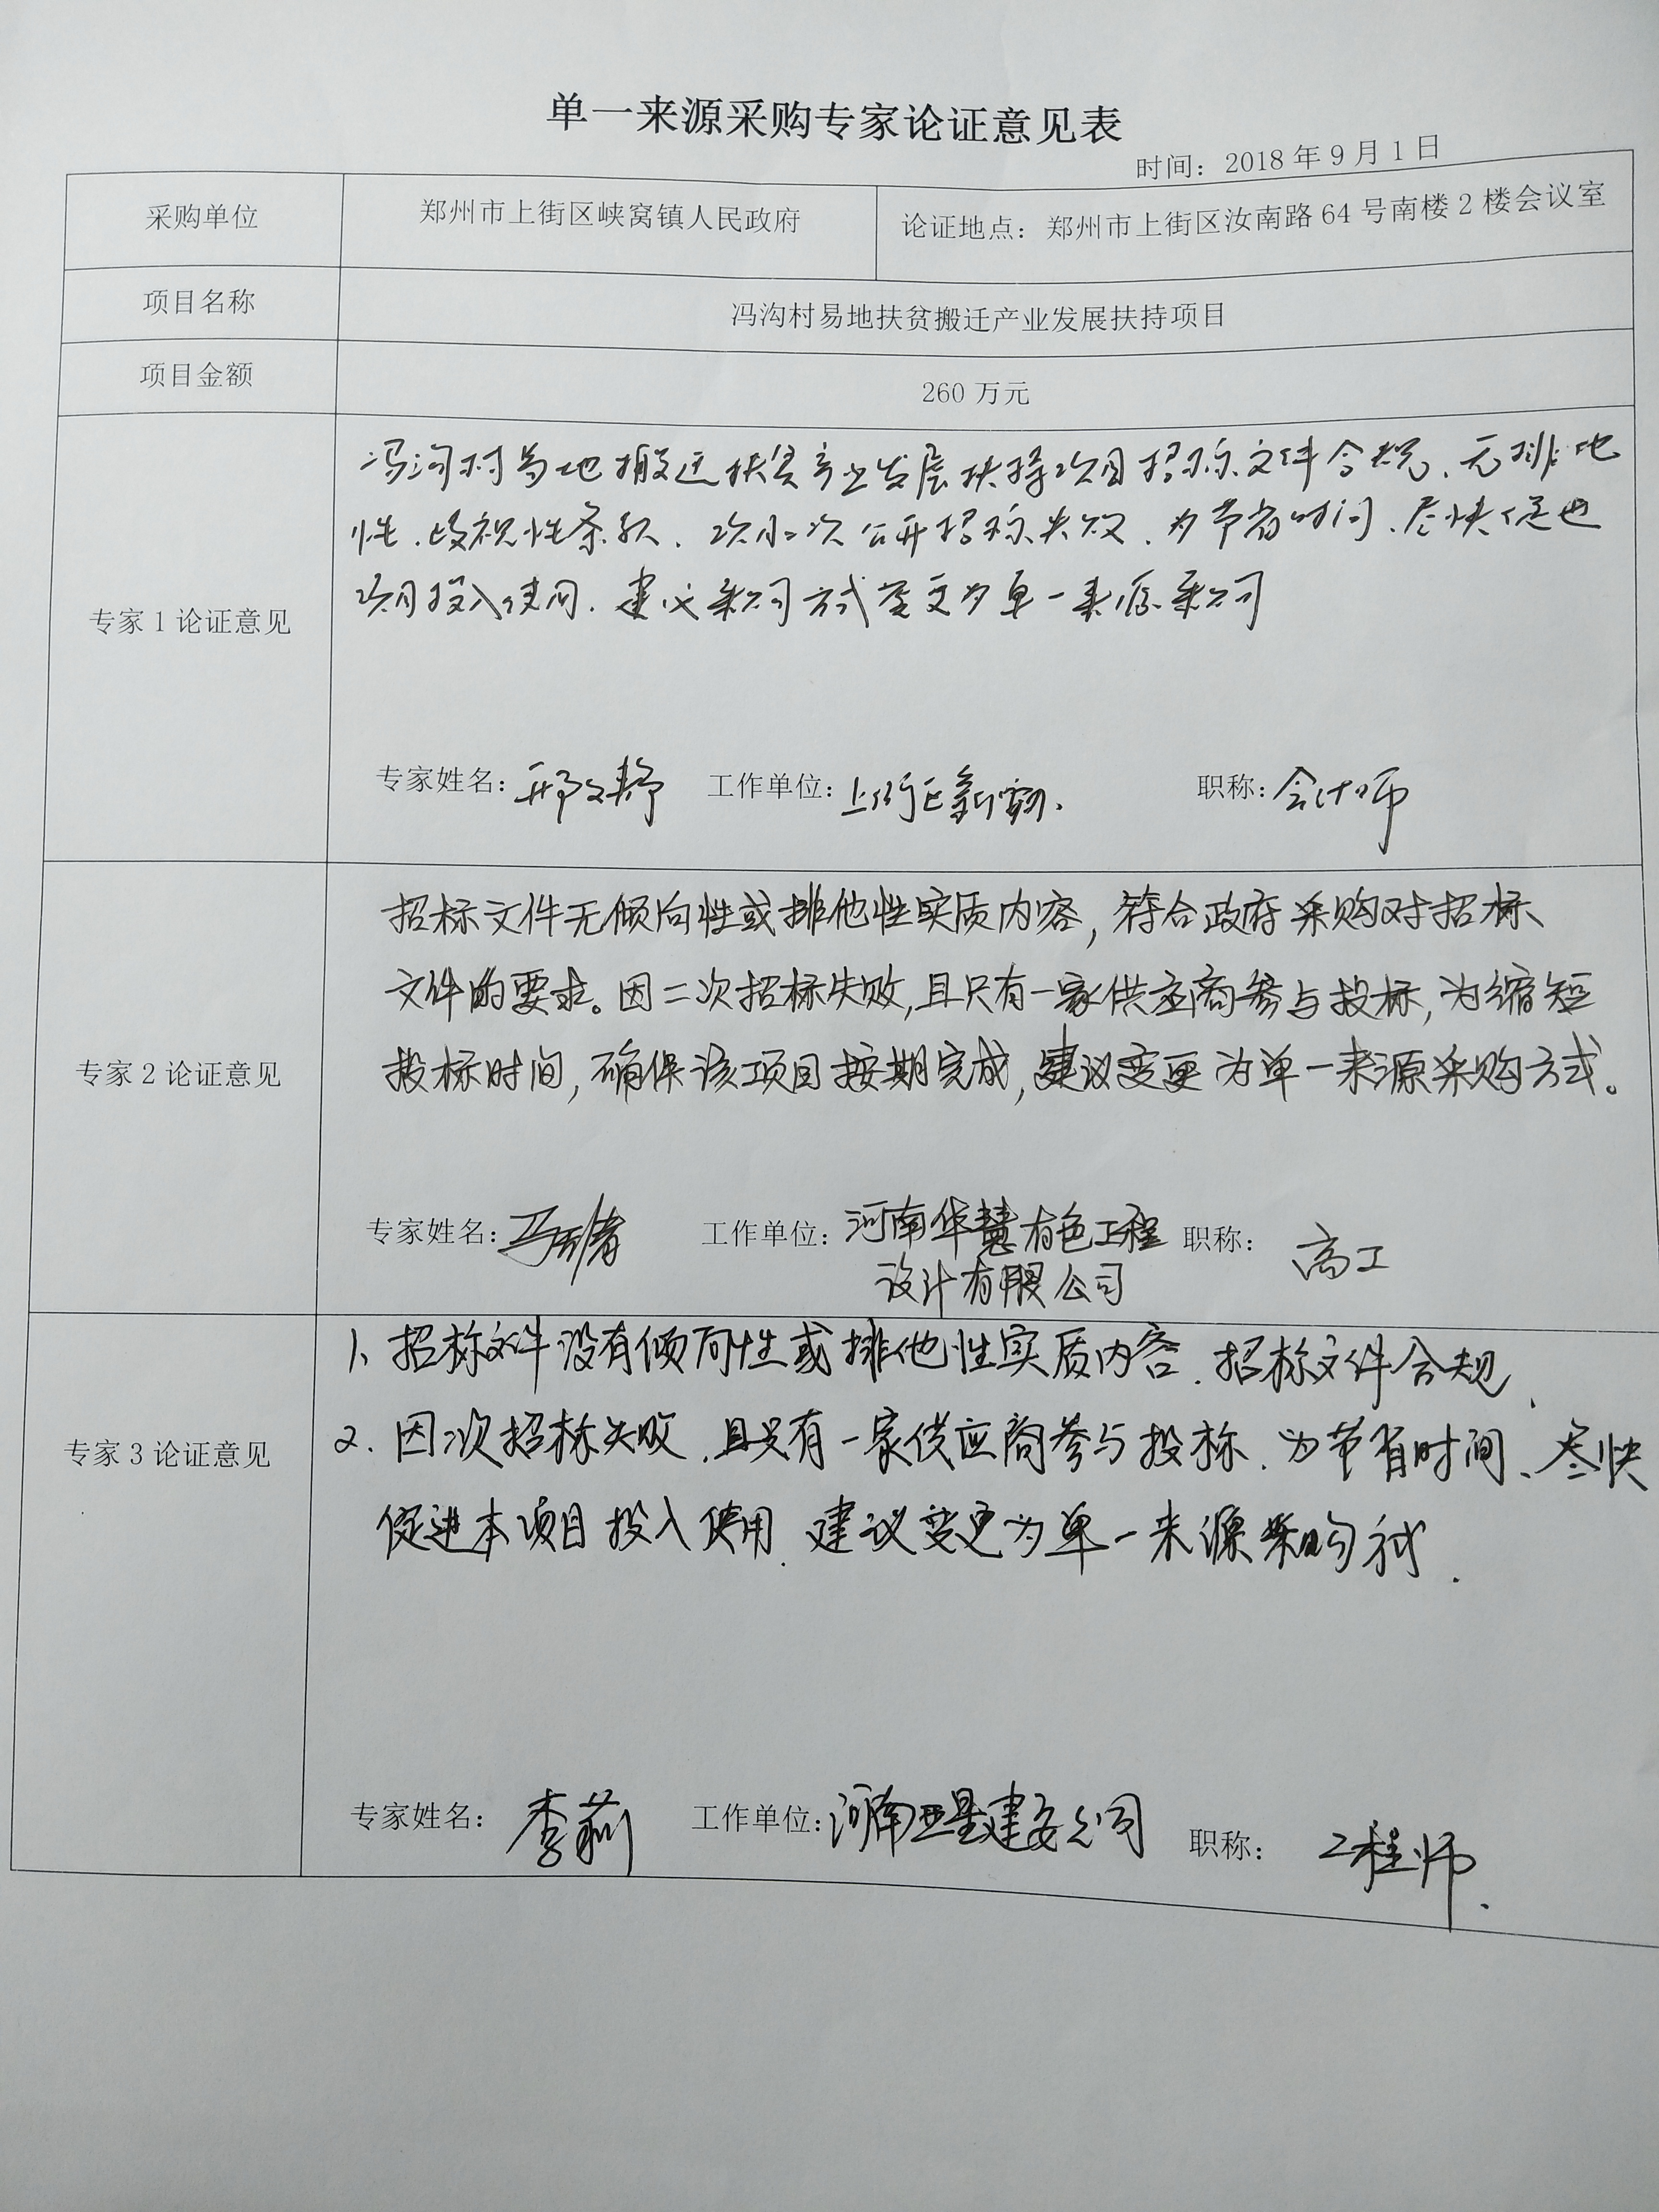 单一来源采购专家论证意见表
时间：2018年9月1日
采购单位
郑州市上街区峡窝镇人民政府
论证地点：郑州市上街区汝南路64号南楼2楼会议室
项目名称
冯沟村易地扶贫搬迁产业发展扶持项目
项目金额
260万元
专家1论证意见
冯沟村易地搬迁扶贫产业发展扶持项目招标文件合规、无排他
性、歧视性条款、二次公开招标失败、为节省时间、尽快促进
项目投入使用、建议采购方式变更为单一来源采购
专家姓名：邢文静 工作单位：上街区 职称：会计师
专家2论证意见
招标文件无倾向性或排他性实质内容，符合政府采购对招标
文件的要求。因二次招标失败，且只有一家供应商参与投标，为缩短
投标时间，确保该项目按期完成，建议变更为单一来源采购方式。
专家姓名：冯 工作单位：河南华慧有色工程 职称：高工
设计有限公司
专家3论证意见
1、招标文件没有倾向性或排他性实质内容、招标文件合规、
2、因次招标失败、且只有一家供应商参与投标、为节省时间、尽快
促进本项目投入使用、建议变更为单一来源采购方式.
专家姓名：李莉 工作单位：河南五星建安公司 职称：工程师.